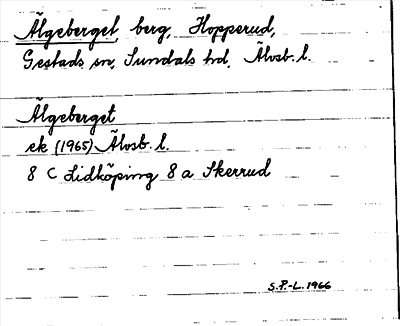 Älgeberget, berg, Hopperud,
Gestads sn, Sundals hd, Älvsb. l.
Älgeberget
ek (1965) Älvsb. l.
8 C Lidköping 8 a Skerrud
S.P.-L. 1966